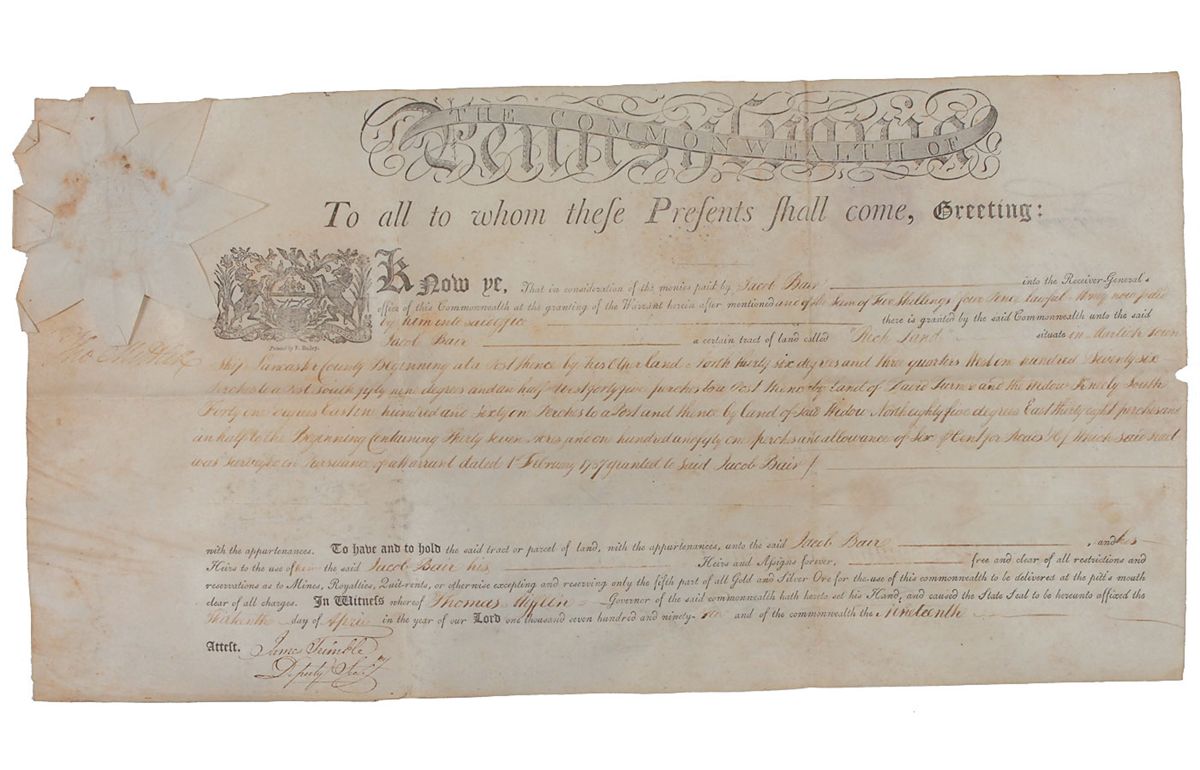 THE COMMONWEALTH OF
Pennsylvania
To all to whom theſe Preſents ſhall come, Greeting:
Know ye, That in consideration of the monies paid by Jacob Bair into the Receiver-General's
office of this Commonwealth at the granting of the Warrant herein after mentioned and of the Sum of Five Shillings four Pence lawful Money now paid
by him into said office there is granted by the said Commonwealth unto the said
Printed by F. Bailey.
Tho Mifflin
Jacob Bair a certain tract of land called "Rich Land" situate in Town
Ship Lancaster County Beginning at a Post thence by his other Land North thirty six degrees and three quarters West one hundred Seventy six
Perches to a Post South fifty nine degrees and an half West forty five perches to a Post thence by Land of David Turner and the Widow South
Forty one degrees East one hundred and sixty one Perches to a Post and thence by land of Said Widow North eighty five degrees East thirty eight perches and
an half to the Beginning Containing Thirty Seven Acres and one hundred and fifty one perches and allowance of Six ⅌ Cent for Roads &c/ Which said tract
was Surveyed in Pursuance of a Warrant dated 1st February 1737 granted to Said Jacob Bair /
with the appurtenances. To have and to hold the said tract or parcel of land, with the appurtenances, unto the said Jacob Bair , and his
Heirs to the use of him the said Jacob Bair his Heirs and Aſsigns forever, free and clear of all restrictions and
reservations as to Mines, Royalties, Quit-rents, or otherwise excepting and reserving only the fifth part of all Gold and Silver Ore for the use of this commonwealth to be delivered at the pitt's mouth
clear of all charges. In Witness whereof Thomas Mifflin Governor of the said commonwealth hath hereto set his Hand, and caused the State Seal to be hereunto affixed the
Thirteenth day of April in the year of our Lord one thousand seven hundred and ninety- five and of the commonwealth the nineteenth
Attest. James Trimble
Deputy Secy